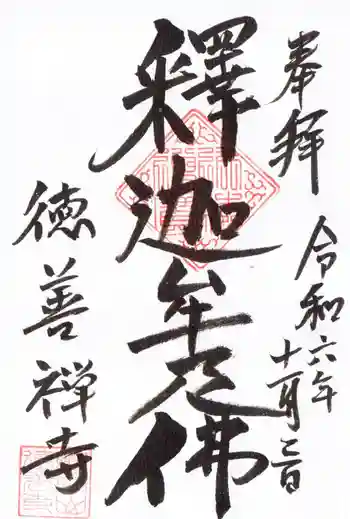 奉拝
令和六年
十一月二日
釋迦牟尼佛
徳善禅寺